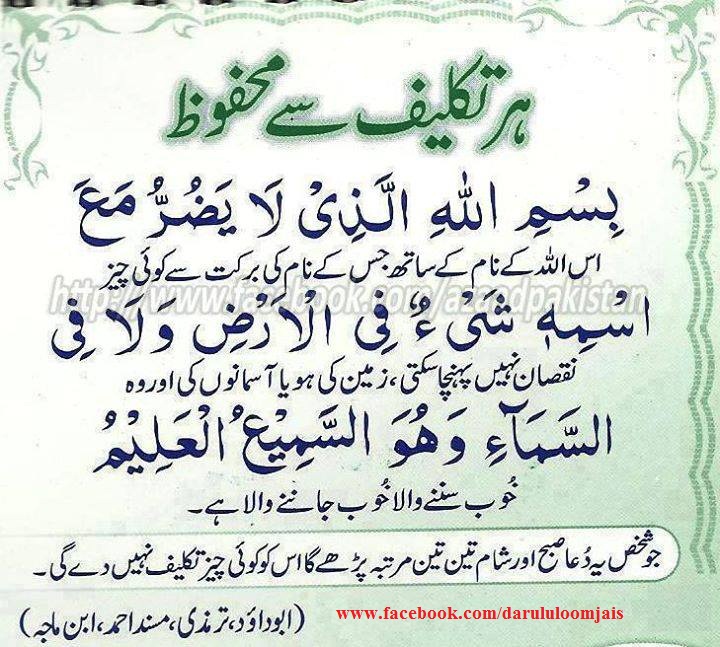 ہر تکلیف سے محفوظ
بِسْمِ اللهِ الَّذِىْ لَا يَضُرُّ مَعَ
اس اللہ کے نام کے ساتھ جس کے نام کی برکت سے کوئی چیز
http://www.facebook.com/azaadpakistan
اسْمِهٖ شَىْءٌ فِى الْاَرْضِ وَلَا فِى
نقصان نہیں پہنچا سکتی، زمین کی ہو یا آسمانوں کی اور وہ
السَّمَآءِ وَهُوَ السَّمِيْعُ الْعَلِيْمُ
خُوب سننے والا خُوب جاننے والا ہے۔
جو شخص یہ دُعا صبح اور شام تین تین مرتبہ پڑھے گا اس کو کوئی چیز تکلیف نہیں دے گی۔
(ابوداؤد، ترمذی، مسند احمد، ابن ماجہ)
www.facebook.com/darululoomjais